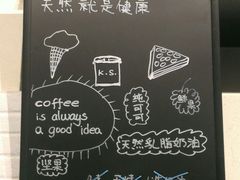 天然就是健康
K.S.
coffee
is always
a good idea
纯
可可
天然乳脂奶油
坚果